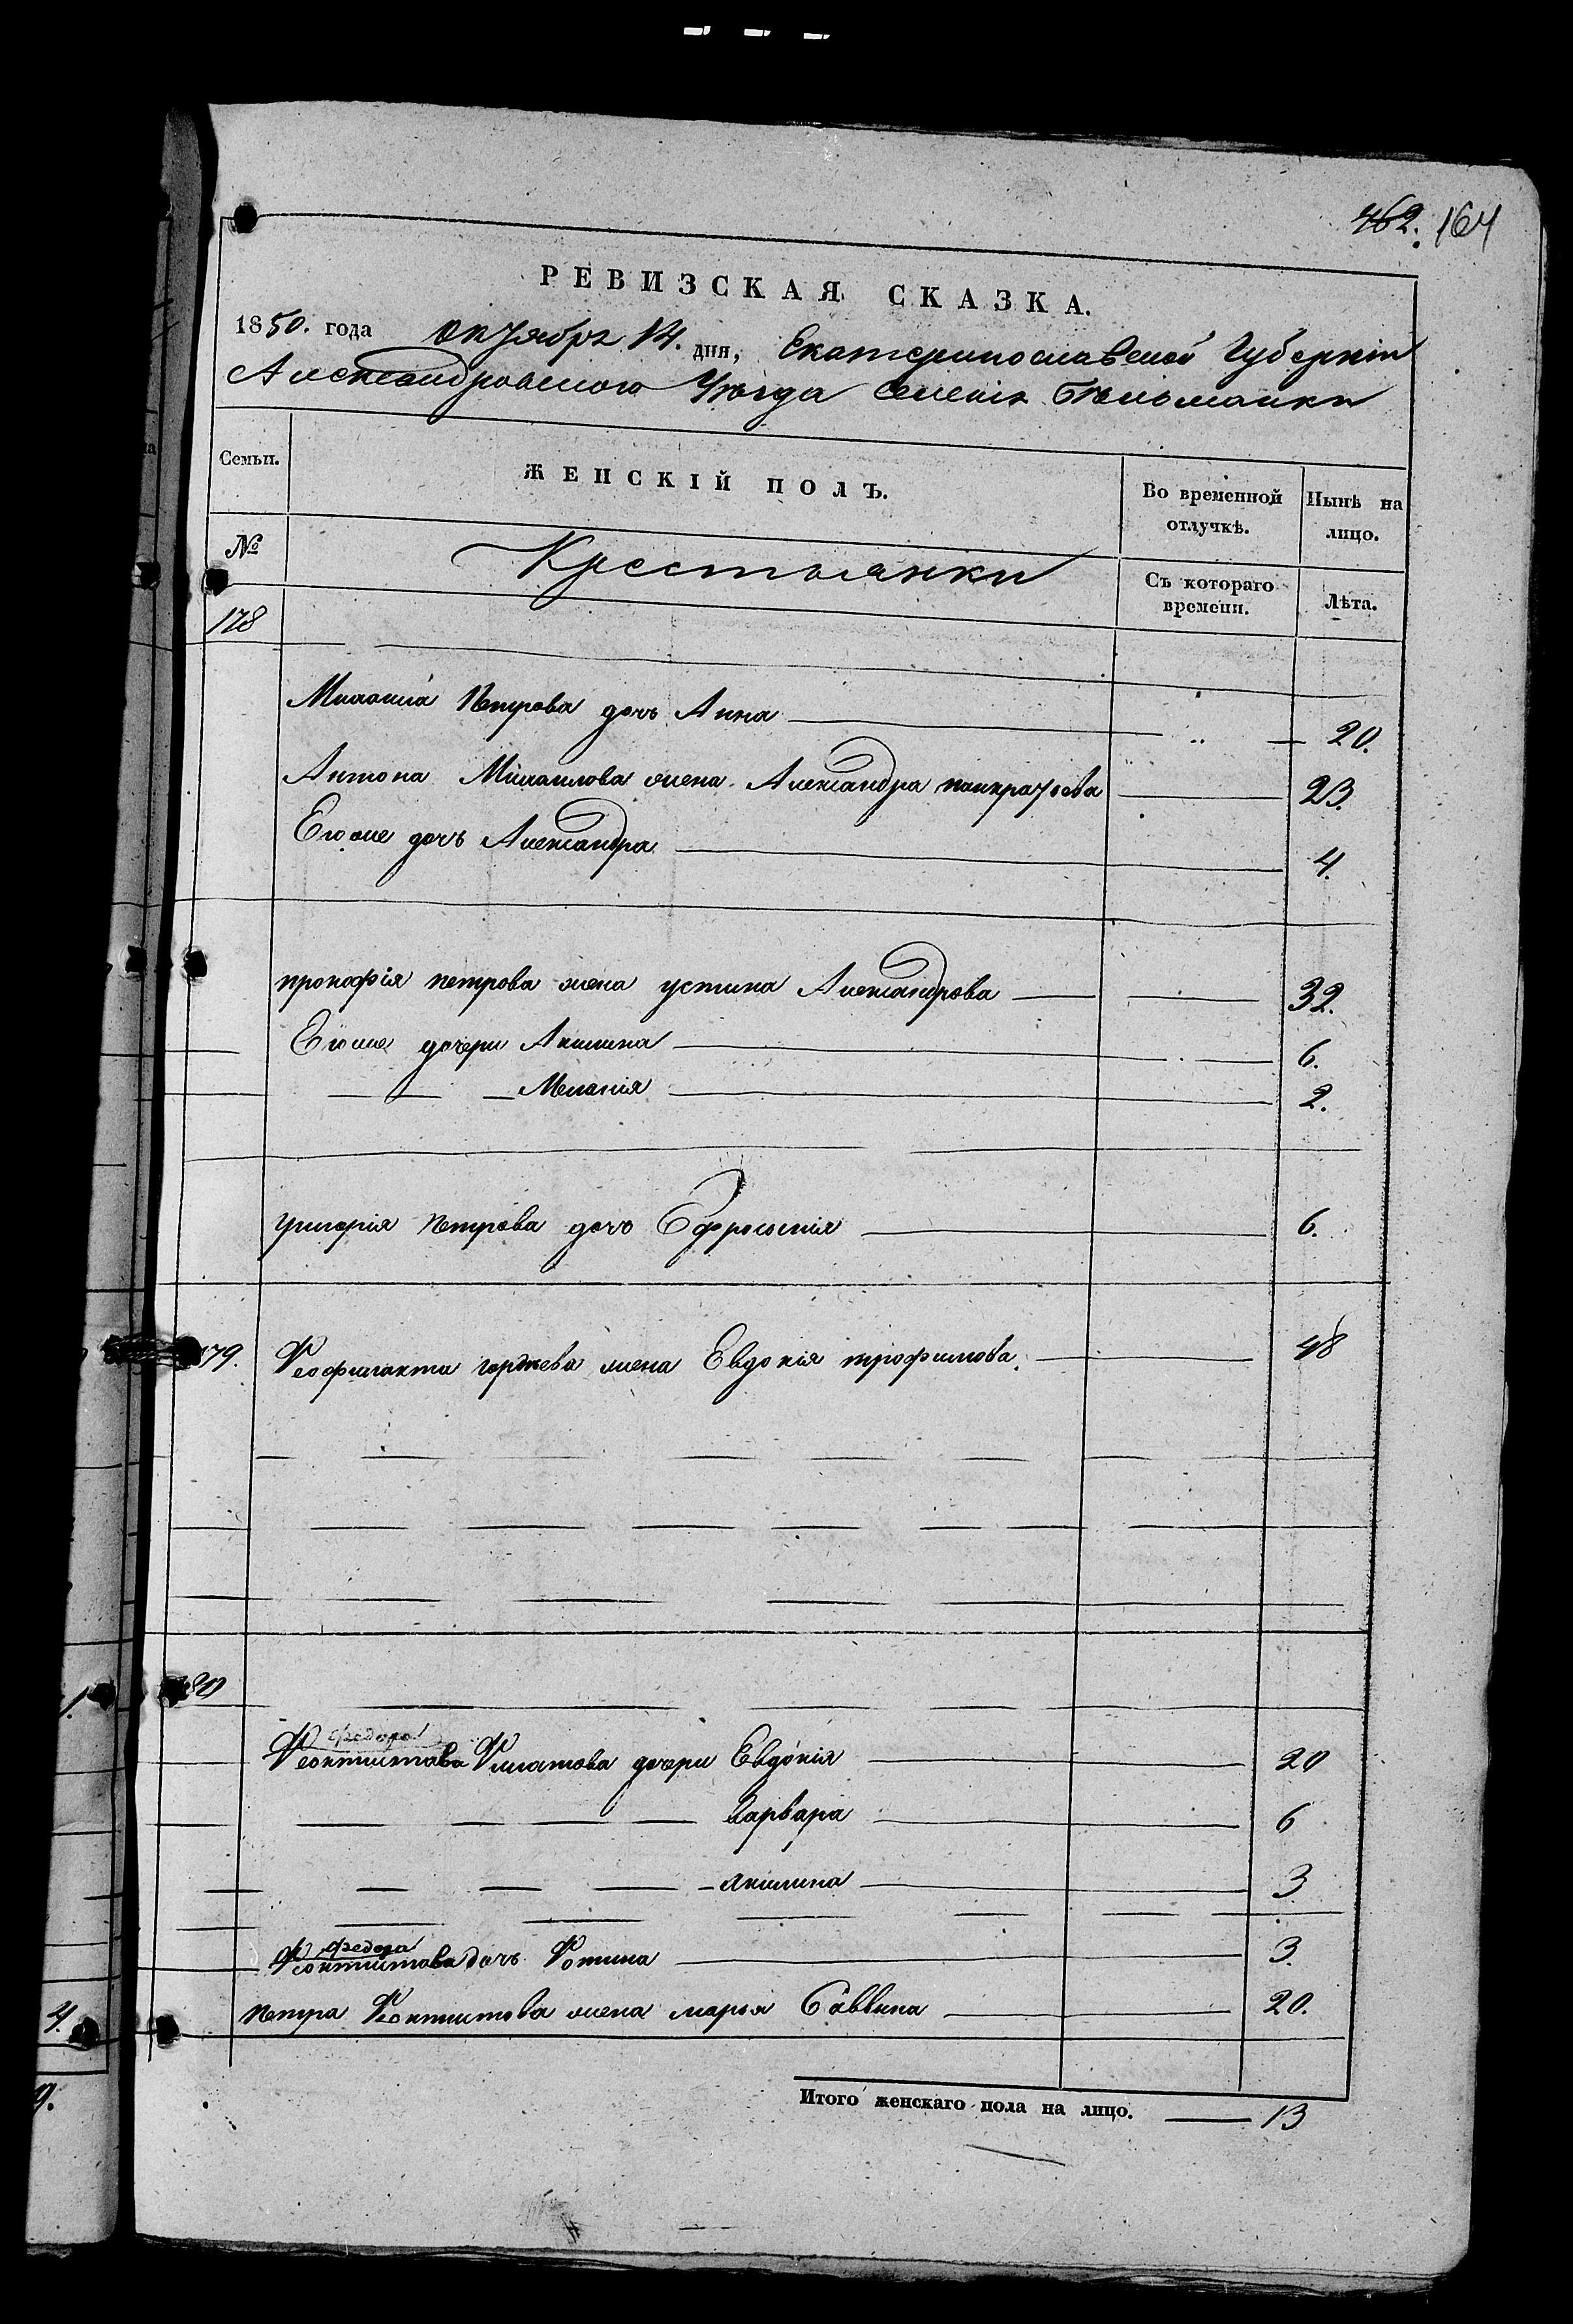 462. 164
РЕВИЗСКАЯ СКАЗКА.
1850. года Октября 14. дня, Екатеринославской Губернiи
Александровского Уѣзда Селенiя Бельманки
Семьи. ЖЕНСКIЙ ПОЛЪ. Во временной отлучкѣ. Нынѣ на лицо.
№ Крестьянки Съ котораго времени. Лѣта.
178
Михаила Петрова дочь Анна 20.
Антона Михаилова жена Александра панкратьева 23.
Егоже дочь Александра 4.
прокофiя петрова жена устина Александрова 32.
Егоже дочери Акилина 6.
Меланiя 2.
григорiя Петрова дочь Ефросинiя 6.
179. Феофилакта гордѣева жена Евдокiя трофимова. 48
180
федора
Феоктистова Филатова дочери Евдокiя 20
Варвара 6
Акилина 3
федора
Феоктистова дочь Фотина 3.
Петра Феоктистова жена марья Саввина 20.
Итого женскаго пола на лицо. 13
4.
9.